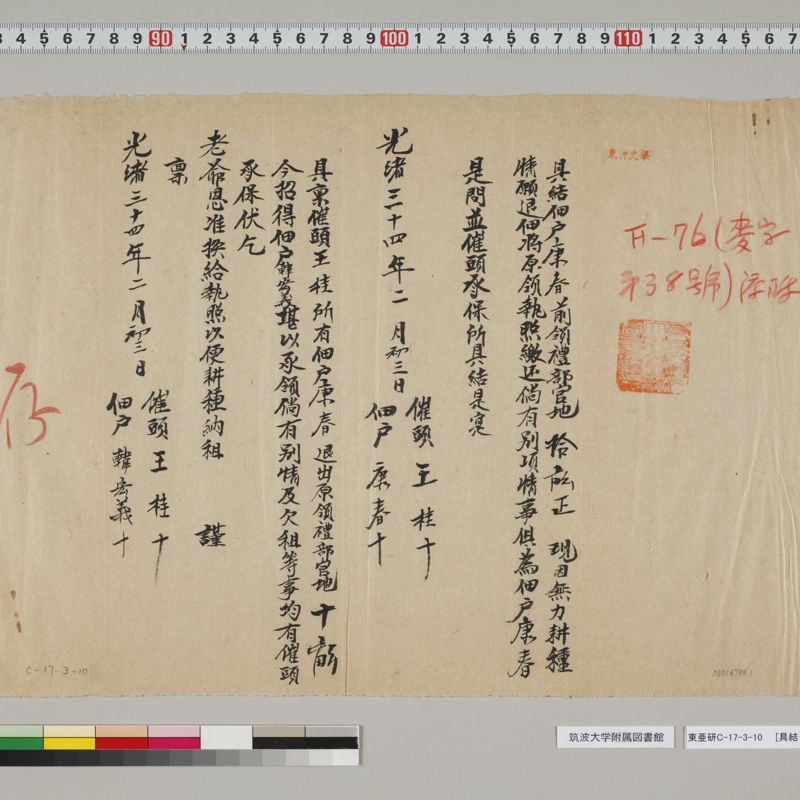 3 4 5 6 7 8 9 90 1 2 3 4 5 6 7 8 9 100 1 2 3 4 5 6 7 8 9 110 1 2 3 4 5 6 7
具結佃戶康春前領禮部官地拾畝正 現因無力耕種
情願退佃將原領執照繳還倘有別項情事俱為佃戶康春
是問並催頭承保所具結是寔
光緒三十四年二月初三日
催頭 王桂十
佃戶 康春十
具稟催頭王桂所有佃戶康春退出原領禮部官地十畝
今招得佃戶韓宏義堪以承領倘有别情及欠租等事均有催頭
承保伏乞
老爺恩准换給執照以便耕種納租 謹
稟
光緒三十四年二月初三日
催頭 王桂十
佃戶 韓宏義十
Ħ-76(麦字
第38号
C-17-3-10
筑波大学附属図書館
東亜研C-17-3-10 [具結